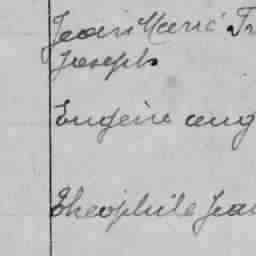 Jean Marie Fr
Joseph
Eugène aug
Théophile Jean